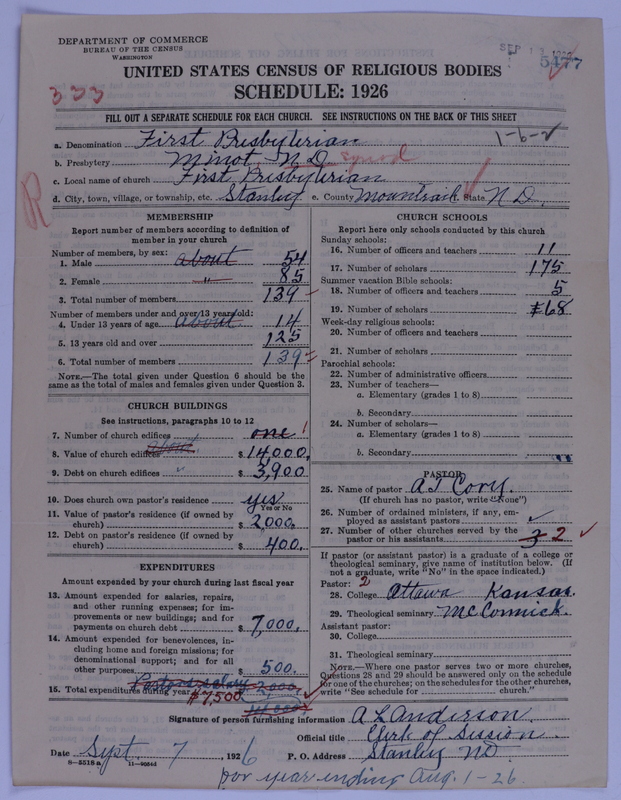 DEPARTMENT OF COMMERCE
BUREAU OF THE CENSUS
WASHINGTON
SEP 1
5477
UNITED STATES CENSUS OF RELIGIOUS BODIES
333
SCHEDULE: 1926
FILL OUT A SEPARATE SCHEDULE FOR EACH CHURCH. SEE INSTRUCTIONS ON THE BACK OF THIS SHEET
1-6-2
a. Denomination First Presbyterian
b. Presbytery Minot, N.D.
c. Local name of church First Presbyterian
R
d. City, town, village, or township, etc. Stanley e. County Mountrail State N D.
MEMBERSHIP
Report number of members according to definition of
member in your church
Number of members, by sex:
1. Male about 54
2. Female " 85
3. Total number of members 139
Number of members under and over 13 years old:
4. Under 13 years of age about 14
5. 13 years old and over 125
6. Total number of members 139
NOTE.—The total given under Question 6 should be
same as the total of males and females given under Question 3.
CHURCH BUILDINGS
See instructions, paragraphs 10 to 12
7. Number of church edifices one 1
8. Value of church edifices about $14,000.
9. Debt on church edifices " $3,900
10. Does church own pastor's residence yes
Yes or No
11. Value of pastor's residence (if owned by
church) $2,000.
12. Debt on pastor's residence (if owned by
church) $400.
EXPENDITURES
Amount expended by your church during last fiscal year
13. Amount expended for salaries, repairs,
and other running expenses; for im-
provements or new buildings; and for
payments on church debt $7,000.
14. Amount expended for benevolences, in-
cluding home and foreign missions; for
denominational support; and for all
other purposes $500.
15. Total expenditures during year $7,500
CHURCH SCHOOLS
Report here only schools conducted by this church
Sunday schools:
16. Number of officers and teachers 11
17. Number of scholars 175
Summer vacation Bible schools:
18. Number of officers and teachers 5
19. Number of scholars 68
Week-day religious schools:
20. Number of officers and teachers
21. Number of scholars
Parochial schools:
22. Number of administrative officers
23. Number of teachers—
a. Elementary (grades 1 to 8)
b. Secondary
24. Number of scholars—
a. Elementary (grades 1 to 8)
b. Secondary
PASTOR
25. Name of pastor A T Cory.
(If church has no pastor, write "None")
26. Number of ordained ministers, if any, em-
ployed as assistant pastors
27. Number of other churches served by the
pastor or his assistants 3 2
If pastor (or assistant pastor) is a graduate of a college or
theological seminary, give name of institution below. (If
not a graduate, write "No" in the space indicated.)
Pastor: 2
28. College Ottawa Kansas.
29. Theological seminary McCormick.
Assistant pastor:
30. College
31. Theological seminary
NOTE.—Where one pastor serves two or more churches,
Questions 28 and 29 should be answered only on the schedule
for one of the churches; on the schedules for the other churches,
write "See schedule for church."
Signature of person furnishing information A L Anderson
Official title Clerk of Session.
Date Sept. 7, 1926 P. O. Address Stanley ND
8-5518a
for year ending Aug. 1-26.